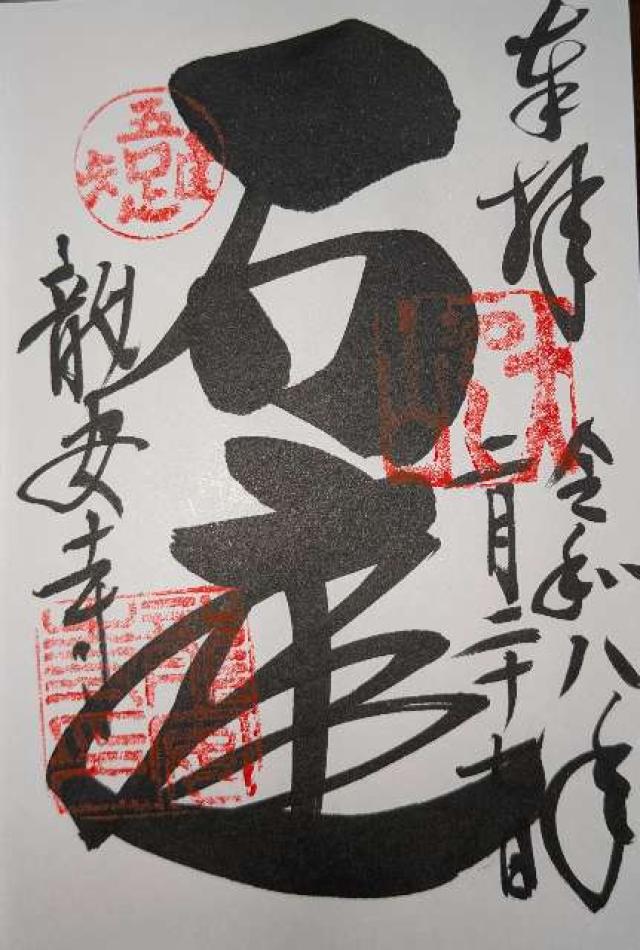 奉拝
令和八年
二月二十七日
石庭
龍安寺
吾唯足知